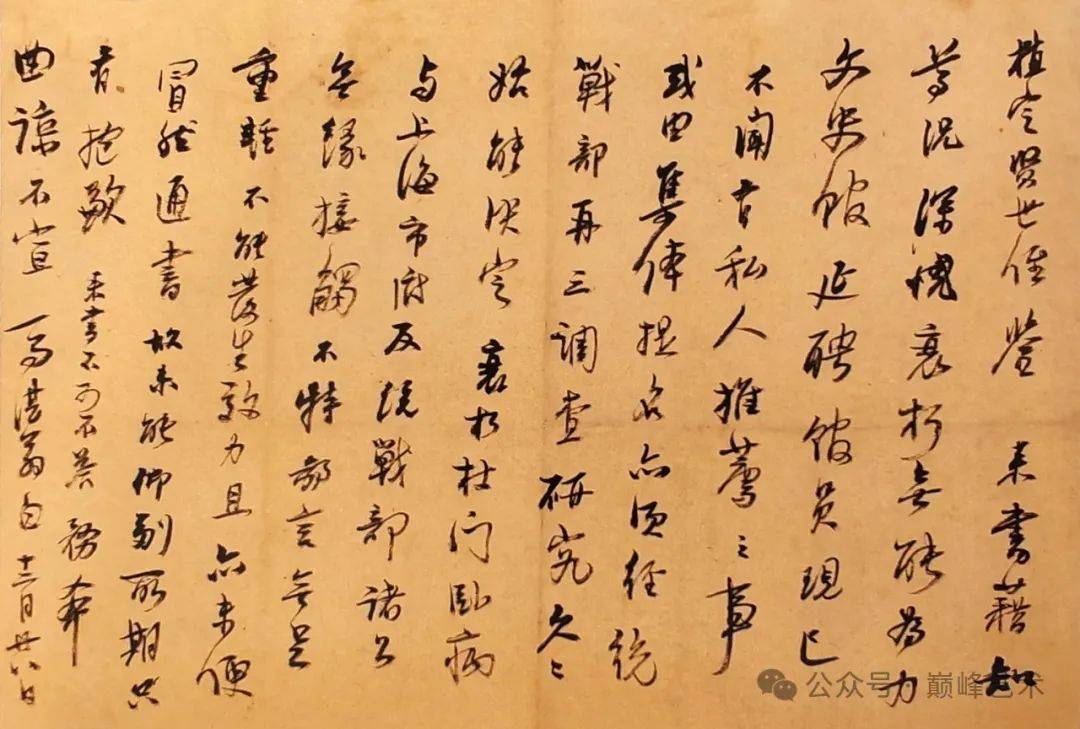 植宣贤世侄鉴 来书藉知
尊况深愧衰朽无能为力
文史馆延聘馆员现已
不闻有私人推荐之事
或由集体提名亦须经统
戰部再三调查研究久之
始能决定 衰朽杜门卧病
与上海市府及统戰部诸公
无缘接觸不特敝言无足
重轻不能发生效力且亦未便
冒然通書故未能仰副所期只
有抱歉 来书不可不答 務希
曲諒不宣 马湛翁白 十二月廿八日
公众号 巅峰艺术